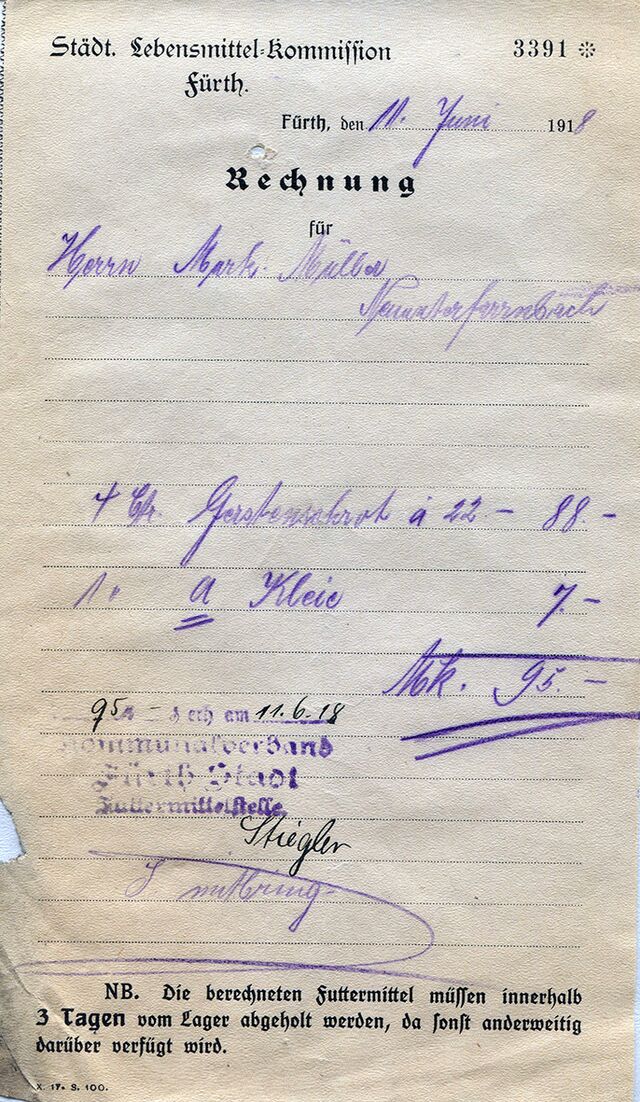 Städt. Lebensmittel-Kommission 3391 *
Fürth.
Fürth, den 11. Juni 1918
Rechnung
für
Herrn Mark. Müller
Neuunterfarrnbach
4 Ctr. Gerstenschrot á 22 – 88.–
1 " a Kleie 7.–
Mk. 95.–
95 – am 11.6.18
Kommunalverband
Fürth Stadt
Futtermittelstelle
Stiegler
NB. Die berechneten Futtermittel müssen innerhalb
3 Tagen vom Lager abgeholt werden, da sonst anderweitig
darüber verfügt wird.
X. 17. S. 100.